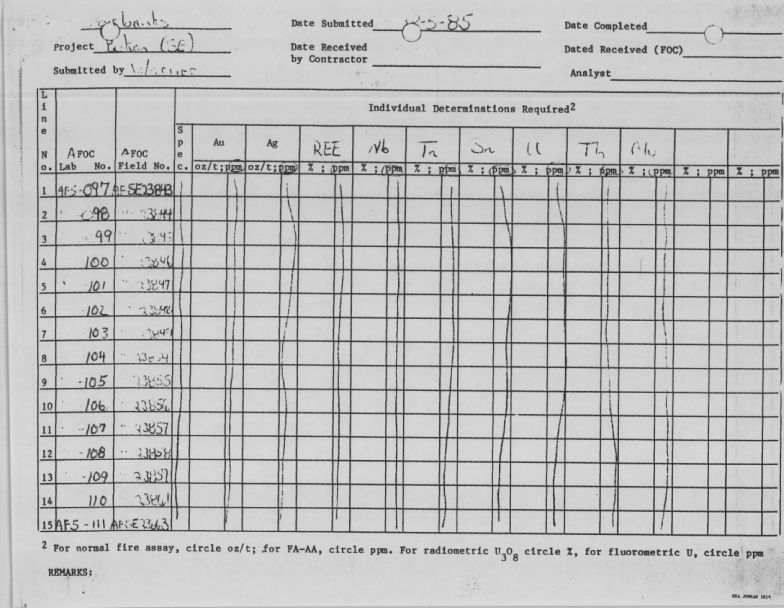 Date Submitted -5-85 Date Completed
Project (SE) Date Received by Contractor Dated Received (FOC)
Submitted by Warner Analyst
Line No. AFOC Lab No. AFOC Field No. Spec. Individual Determinations Required2
Au Ag REE Nb Ta Sn U Th
oz/t;ppm oz/t;ppm % ; ppm % ; ppm % ; ppm % ; ppm % ; ppm % ; ppm % ; ppm % ; ppm % ; ppm
1 AFS-097 AFSE23843
2 098 23844
3 99
4 100 23846
5 -101 23847
6 -102 23848
7 103 23849
8 104
9 -105 23855
10 106 23856
11 -107 23857
12 -108 23858
13 -109 23859
14 110 23861
15 AFS-111 AFSE23863
2 For normal fire assay, circle oz/t; for FA-AA, circle ppm. For radiometric U3O8 circle %, for fluorometric U, circle ppm
REMARKS: